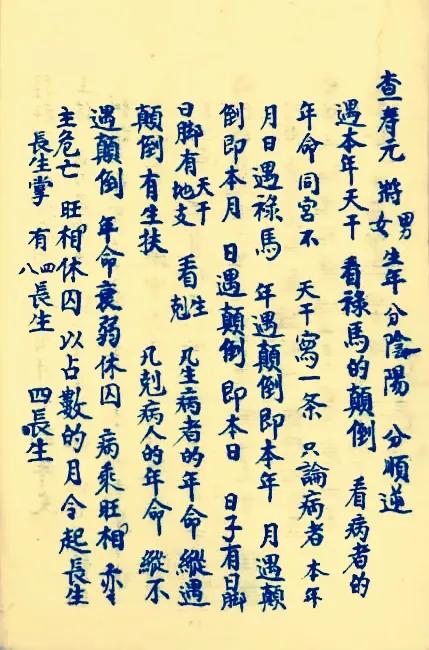 查壽元 將男女生年分陰陽 分順逆
遇本年天干 看祿馬的顛倒 看病者的
年命同宮不 天干寫一条 只論病者本年
月日遇祿馬 年遇顛倒即本年 月遇顛
倒即本月 日遇顛倒即本日 日子有日脚
日脚有天干地支 看生剋 凡生病者的年命縱遇
顛倒有生扶 凡剋病人的年命 縱不
遇顛倒 年命衰弱休囚 病乘旺相亦
主危亡 旺相休囚以占數的月令起長生
長生掌 有四八長生 四長生